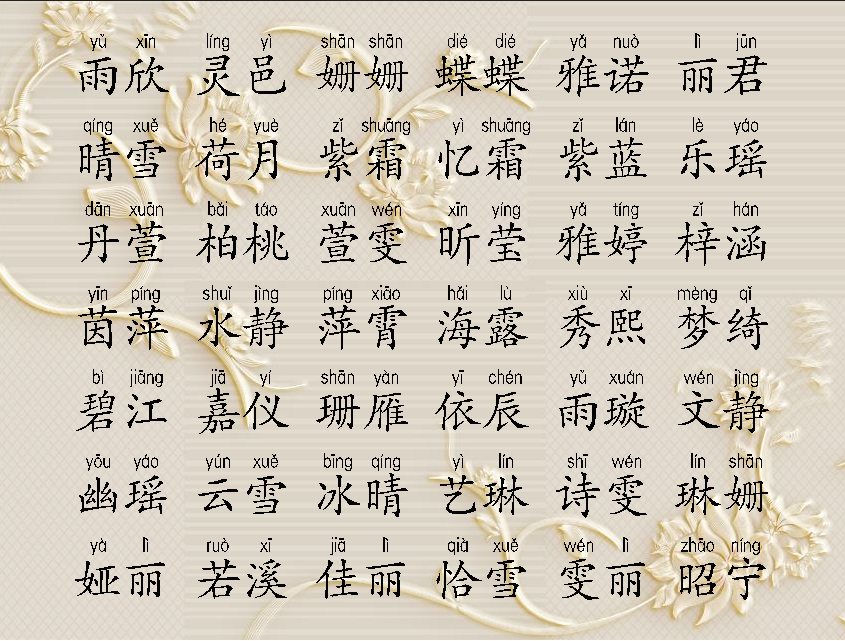 yǔ xīn líng yì shān shān dié dié yǎ nuò lì jūn
雨欣 灵邑 姗姗 蝶蝶 雅诺 丽君
qíng xuě hé yuè zǐ shuāng yì shuāng zǐ lán lè yáo
晴雪 荷月 紫霜 忆霜 紫蓝 乐瑶
dān xuān bǎi táo xuān wén xīn yíng yǎ tíng zǐ hán
丹萱 柏桃 萱雯 昕莹 雅婷 梓涵
yīn píng shuǐ jìng píng xiāo hǎi lù xiù xī mèng qǐ
茵萍 水静 萍霄 海露 秀熙 梦绮
bì jiāng jiā yí shān yàn yī chén yǔ xuán wén jìng
碧江 嘉仪 珊雁 依辰 雨璇 文静
yōu yáo yún xuě bīng qíng yì lín shī wén lín shān
幽瑶 云雪 冰晴 艺琳 诗雯 琳姗
yà lì ruò xī jiā lì qià xuě wén lì zhāo níng
娅丽 若溪 佳丽 恰雪 雯丽 昭宁